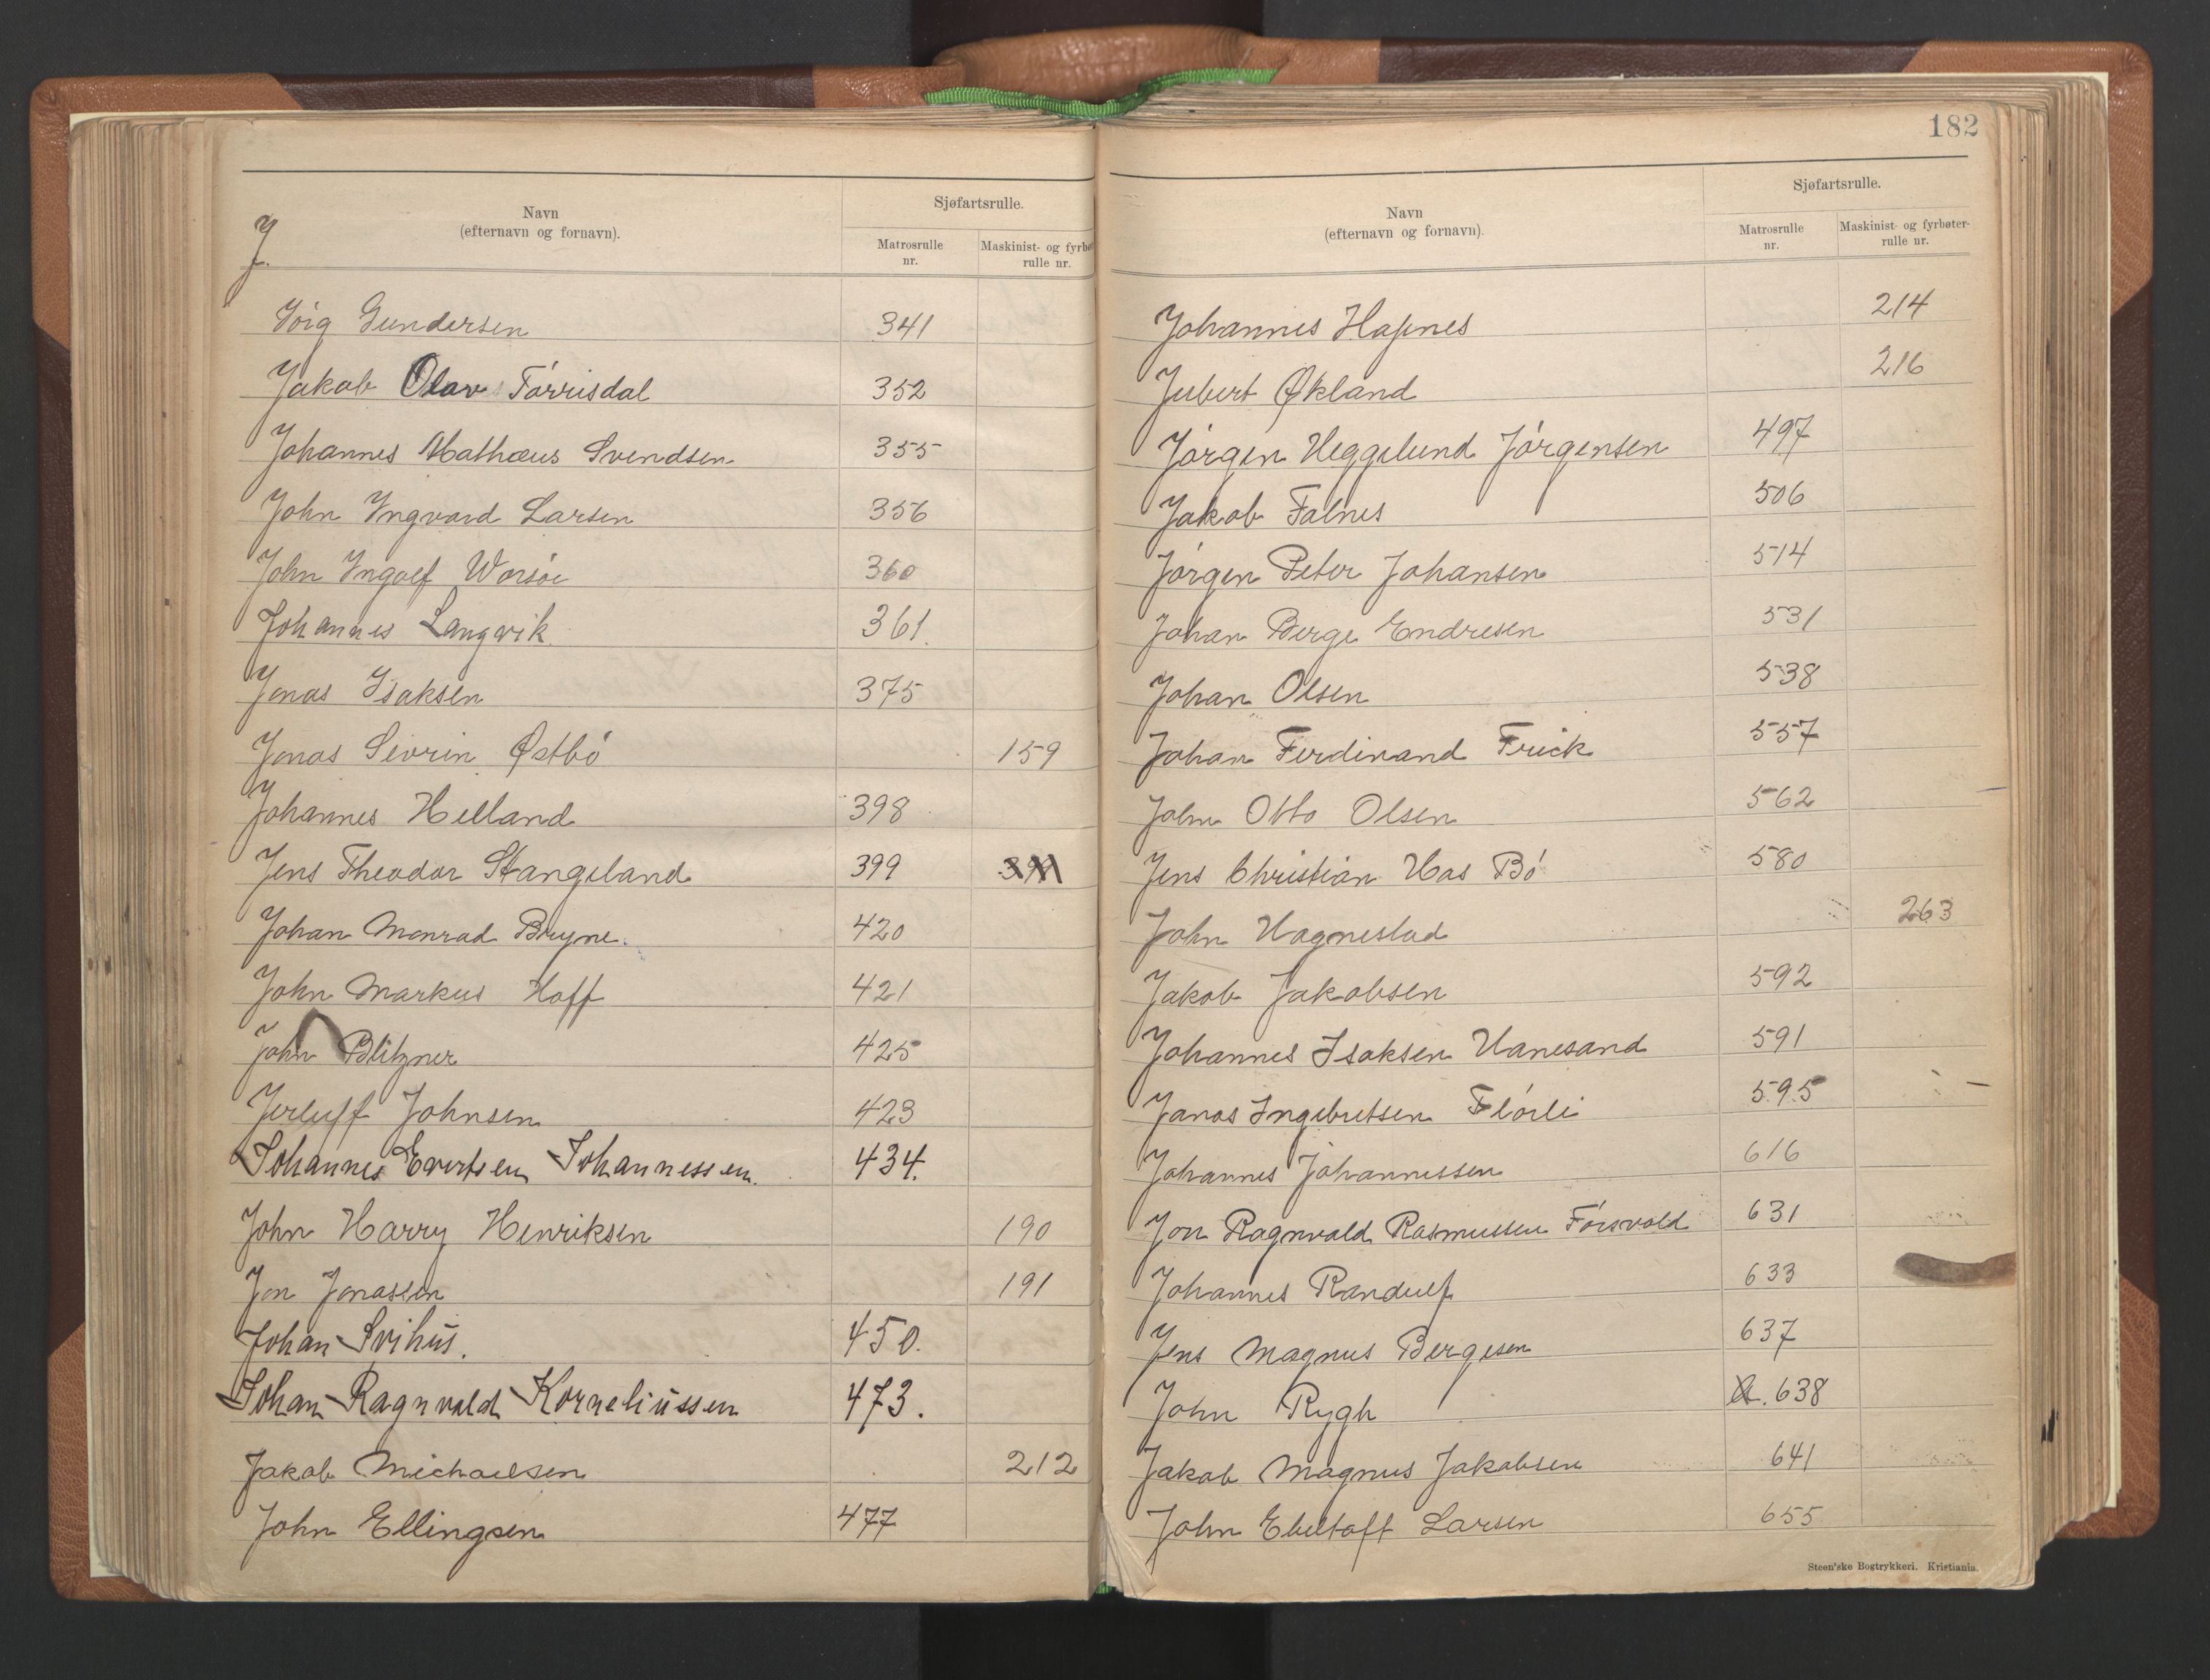 J.
Navn
(efternavn og fornavn).
Sjøfartsrulle.
Matrosrulle
nr.
Maskinist- og fyrbø
rulle nr.
Jörg Gundersen 341
Jakob Olav Törrisdal 352
Johannes Mathæus Svendsen 355
John Yngvard Larsen 356
John Yngolf Worsöe 360
Johannes Langvik 361.
Jonas Isaksen 375
Jonas Sivrin Østbö 159
Johannes Helland 398
Jens Theodor Stangeland 399
Johan Monrad Bryne. 420
John Markus Hoff 421
John Blitzner 425
Jerluff Johnsen 423
Johannes Evertsen Johannessen. 434.
John Harry Henriksen 190
Jon Jonassen 191
Johan Svihus. 450.
Johan Ragnvald Korneliussen 473.
Jakob Michaelsen 212
John Ellingsen 477
182
Navn
(efternavn og fornavn).
Sjøfartsrulle.
Matrosrulle
nr.
Maskinist- og fyrbøter-
rulle nr.
Johannes Hapnes 214
Jubert Økland 216
Jörgen Heggelund Jörgensen 497
Jakob Falnes 506
Jörgen Peter Johansen 514
Johan Berge Endresen 531
Johan Olsen 538
Johan Ferdinand Frick 557
John Otto Olsen 562
Jens Christian Has Bö 580
John Hagnestad 263
Jakob Jakobsen 592
Johannes Isaksen Hanesand 591
Jonas Ingebretsen Flörli 595
Johannes Johannessen 616
Jon Ragnvald Rasmussen Försvold 631
Johannes Randulf 633
Jens Magnus Bergesen 637
John Rygh 638
Jakob Magnus Jakobsen 641
John Ebeltoft Larsen 655
Steen'ske Bogtrykkeri. Kristiania.